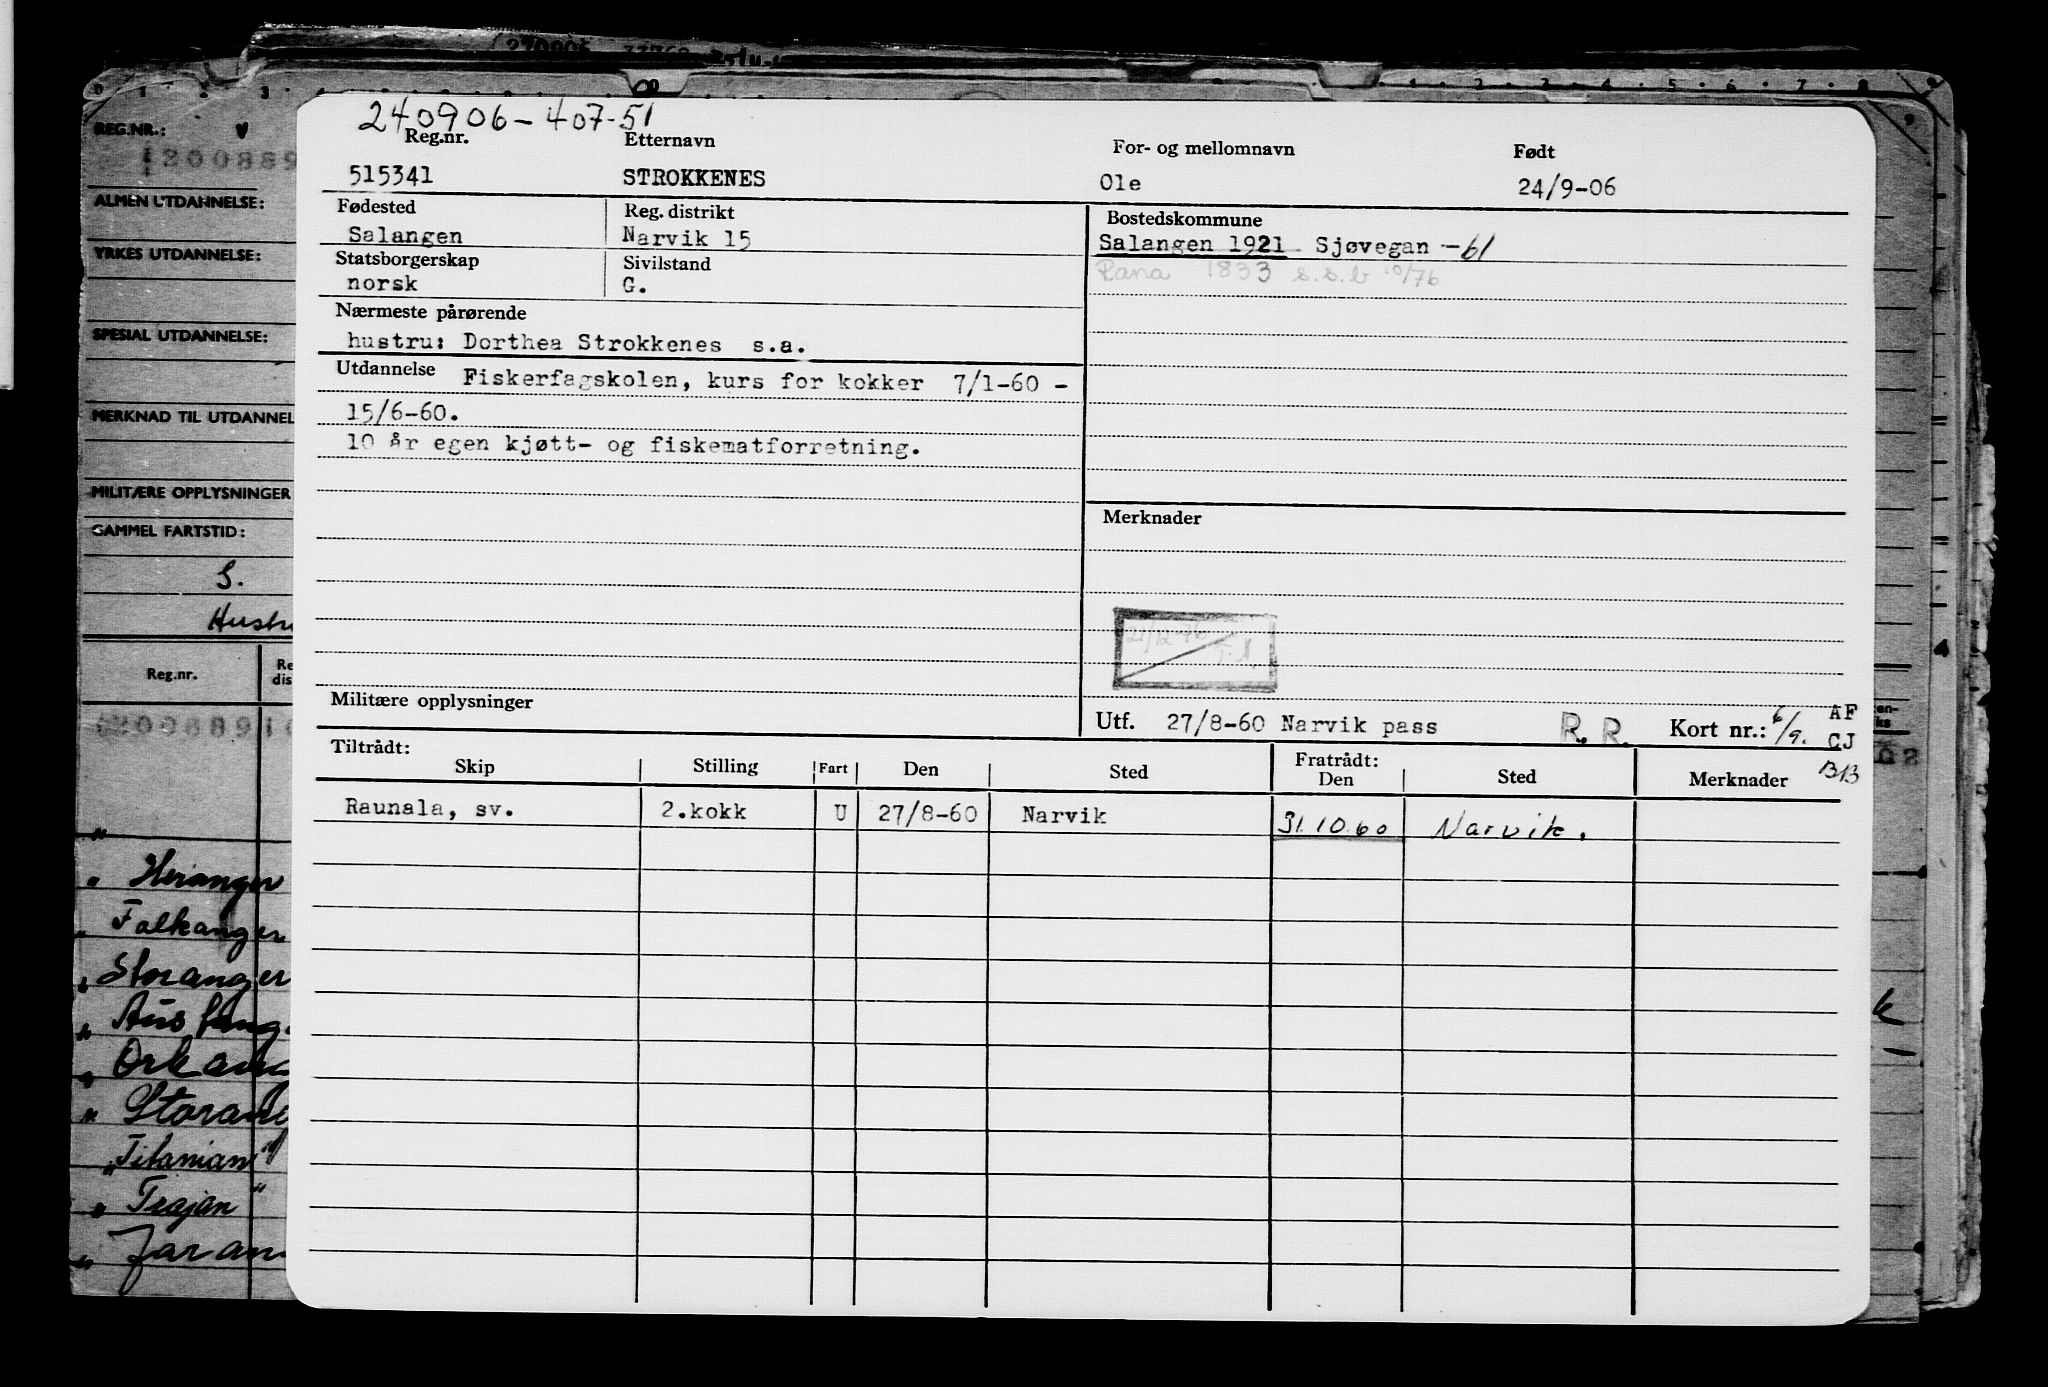 240906-407-51
Reg.nr. Etternavn For- og mellomnavn Født
515341 STROKKENES Ole 24/9-06
Fødested Reg. distrikt Bostedskommune
Salangen Narvik 15 Salangen 1921 Sjøvegan -61
Statsborgerskap Sivilstand Rana 1833 s.s.b 10/76
norsk G.
Nærmeste pårørende
hustru: Dorthea Strokkenes s.a.
Utdannelse Fiskerfagskolen, kurs for kokker 7/1-60 -
15/6-60.
10 år egen kjøtt- og fiskematforretning.
Merknader
21/12 76
Militære opplysninger
Utf. 27/8-60 Narvik pass R. R. Kort nr.: 6/9. AF
CJ
BB
Tiltrådt: Fratrådt:
Skip Stilling Fart Den Sted Den Sted Merknader
Raunala, sv. 2.kokk U 27/8-60 Narvik 31.10.60 Narvik.
REG.NR.:
ALMEN UTDANNELSE:
YRKES UTDANNELSE:
SPESIAL UTDANNELSE:
MERKNAD TIL UTDANNEL
MILITÆRE OPPLYSNINGER
GAMMEL FARTSTID:
S.
Hustr
Reg.nr. Re
dis
" Heranger
" Falkanger
" Storanger
"Titanian"
"Trajan"